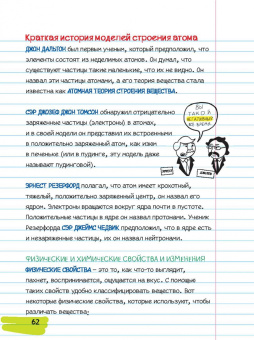 Краткая история моделей строения атома
ДЖОН ДАЛЬТОН был первым ученым, который предположил, что
элементы состоят из неделимых атомов. Он думал, что
существуют частицы такие маленькие, что их не видно. Он
назвал эти частицы атомами, а его теория вещества стала
известна как АТОМНАЯ ТЕОРИЯ СТРОЕНИЯ ВЕЩЕСТВА.
СЭР ДЖОЗЕФ ДЖОН ТОМСОН обнаружил отрицательно
заряженные частицы (электроны) в атомах,
и в своей модели он представил их встроенными
в положительно заряженный атом, как изюм
в печеньке (или в пудинге, эту модель даже
называют пудинговой).
ВЫ
ТАКОЙ
НЕГАТИВНЫЙ
ВСЕ ВРЕМЯ
ЭРНЕСТ РЕЗЕРФОРД полагал, что атом имеет крохотный,
тяжелый, положительно заряженный центр, он назвал его
ядром. Электроны вращаются вокруг ядра почти в пустоте.
Положительные частицы в ядре он назвал протонами. Ученик
Резерфорда СЭР ДЖЕЙМС ЧЕДВИК предположил, что в ядре есть
и незаряженные частицы, их он назвал нейтронами.
ФИЗИЧЕСКИЕ И ХИМИЧЕСКИЕ СВОЙСТВА И ИЗМЕНЕНИЯ
ФИЗИЧЕСКИЕ СВОЙСТВА – это то, как что-то выглядит,
пахнет, воспринимается, ощущается на вкус. С помощью
таких свойств удобно классифицировать вещество. Вот
некоторые физические свойства, которые используют, чтобы
различать вещества:
62